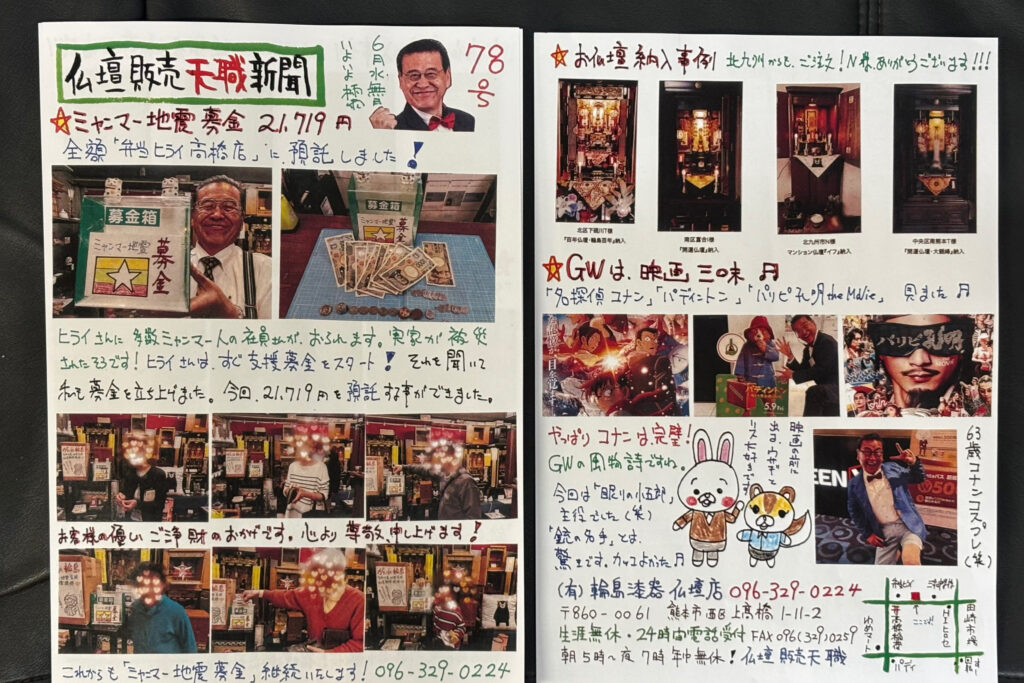 仏壇販売天職新聞
6月水無月
いよいよ梅雨
78
号
ミャンマー地震募金 21,719円
全額「弁当ヒライ高橋店」に預託しました!
募金箱
ミャンマー地震
募金
募金箱
ミャンマー地震
ヒライさんに多数ミャンマー人の社員さんがおられます。実家が被災
されたそうです!ヒライさんは、すぐ支援募金をスタート!それを聞いて
私も募金を立ち上げました。今回、21,719円を預託する事ができました。
お客様の優しいご浄財のおかげです。心より尊敬申し上げます!
これからも「ミャンマー地震募金」継続いたします!096-329-0224
お仏壇納入事例 北九州からも、ご注文!N様、ありがとうございます!!!
北区下硯川T様
『百年仏壇・輪島百年』納入
南区富合I様
『開運仏壇』納入
北九州市N様
マンション仏壇『イフ』納入
中央区南熊本T様
『開運仏壇・大鶴崎』納入
GWは、映画三昧♬
「名探偵コナン」「パディントン」「パリピ孔明the Movie」見ました♬
パディントン
5.9 Fri
パリピ孔明
やっぱりコナンは、完璧!
GWの風物詩ですわ。
今回は「眠りの小五郎」
主役でした(笑)
「銃の名手」とは、
驚きです。カッコよかった♬
映画の前に
出る、ウサギと
リス大好きです
63歳コナンコスプレ(笑)
(有)輪島漆器仏壇店 096-329-0224
〒860-0061 熊本市西区上高橋1-11-2
生涯無休・24時間電話受付 FAX096(329)0259
朝5時〜夜7時年中無休!仏壇販売天職
ここだよ
田崎市場
ゆめマート